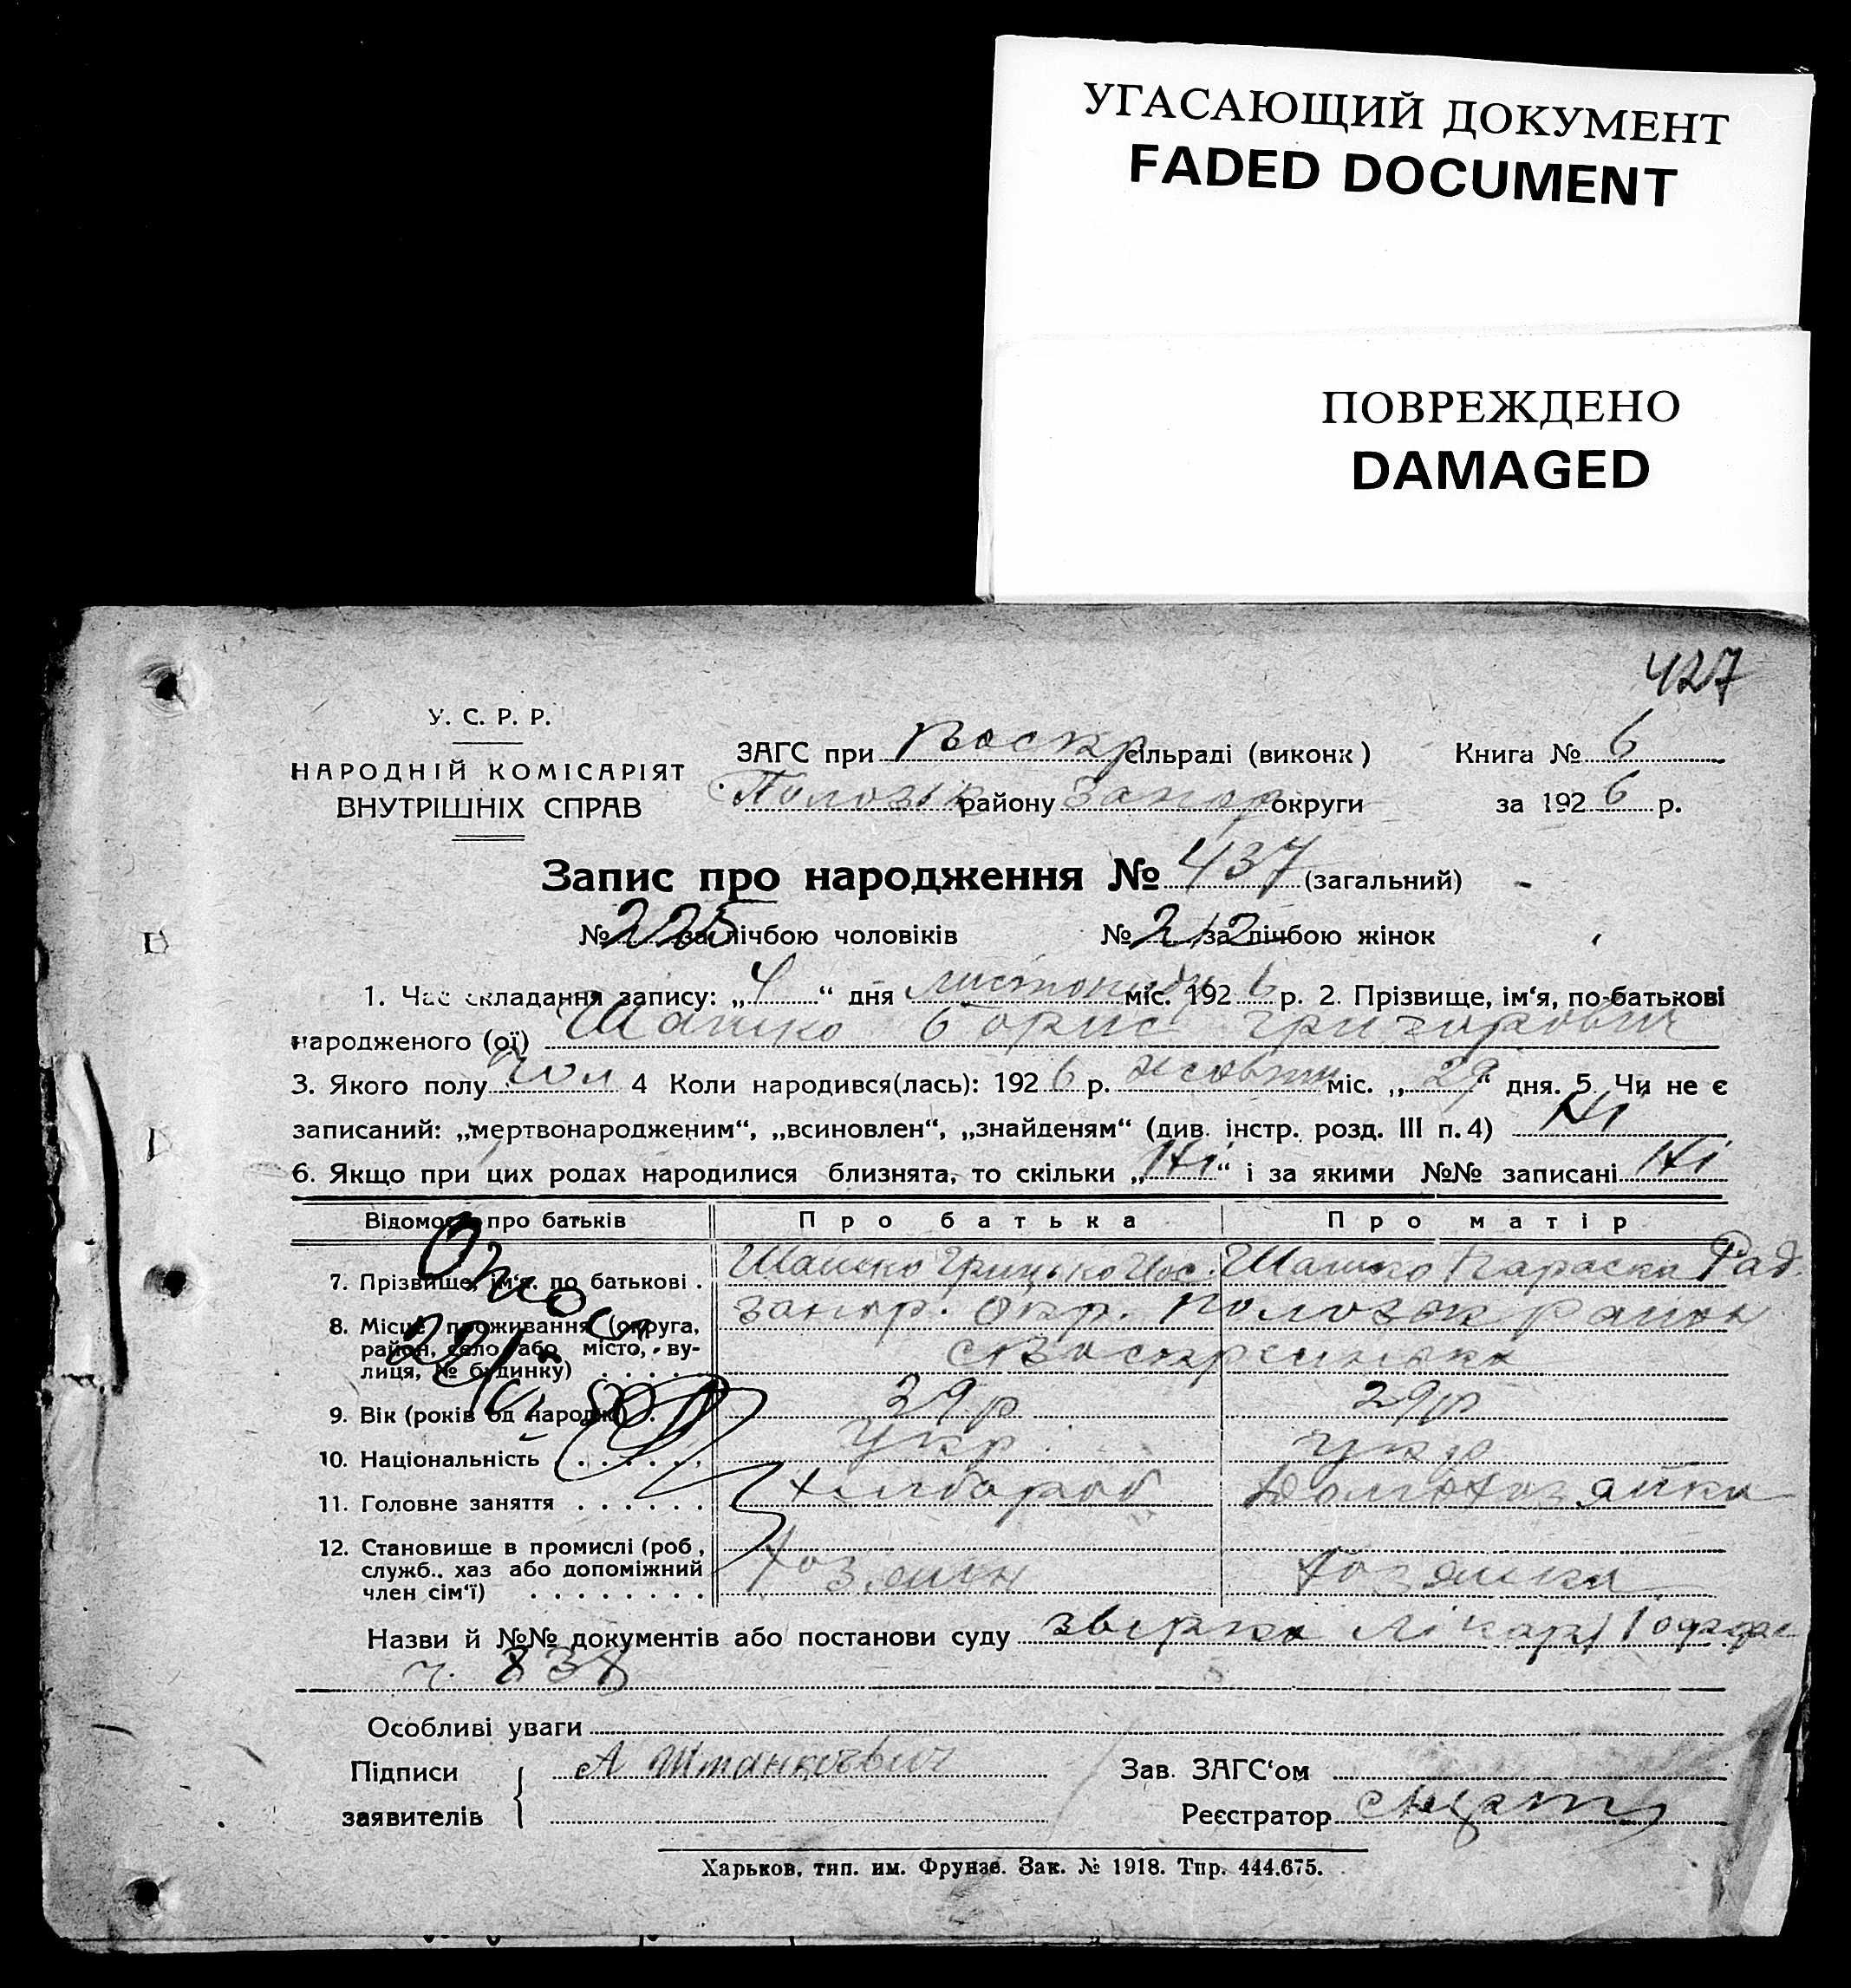 УГАСАЮЩИЙ ДОКУМЕНТ
FADED DOCUMENT
ПОВРЕЖДЕНО
DAMAGED
427
У. С. Р. Р.
НАРОДНІЙ КОМІСАРІЯТ
ВНУТРІШНІХ СПРАВ
ЗАГС при Воскр сільраді (виконк) Книга № 6
Полозьк району Запор округи за 1926 р.
Запис про народження № 437 (загальний)
№ 225 за лічбою чоловіків № 212 за лічбою жінок
1. Час складання запису: „4“ дня листопаду міс. 1926 р. 2. Прізвище, ім‘я, по-батькові
народженого (ої) Шашко Борис Григорович
3. Якого полу чол 4 Коли народився(лась): 1926 р. жовтн міс. „29“ дня. 5. Чи не є
записаний: „мертвонародженим“, „всиновлен“, „знайденям“ (див. інстр. розд. III п. 4) Ні
6. Якщо при цих родах народилися близнята, то скільки „Ні“ і за якими №№ записані Ні
Відомості про батьків Про батька Про матір
7. Прізвище, ім‘я, по батькові . Шашко Грицько Йос. Шашко Параска Рад.
8. Місце проживання (округа, район, село або місто, вулиця, № будинку) Запор. Окр. Полозьк район
с Воскресенька
9. Вік (років од народж.) . 39 р 29 р
10. Національність . . . . . . Укр. Укр
11. Головне заняття . . . . . . Хлібороб Домохозяйка
12. Становище в промислі (роб,
служб., хаз або допоміжний
член сім‘ї) . . . . . . . . Хозяин Хозяйка
Назви й №№ документів або постанови суду лікаря
ч. 838
Особливі уваги
Підписи А Зав. ЗАГС‘ом
заявителів Реєстратор
Харьков, тип. им. Фрунзе. Зак. № 1918. Тир. 444.675.